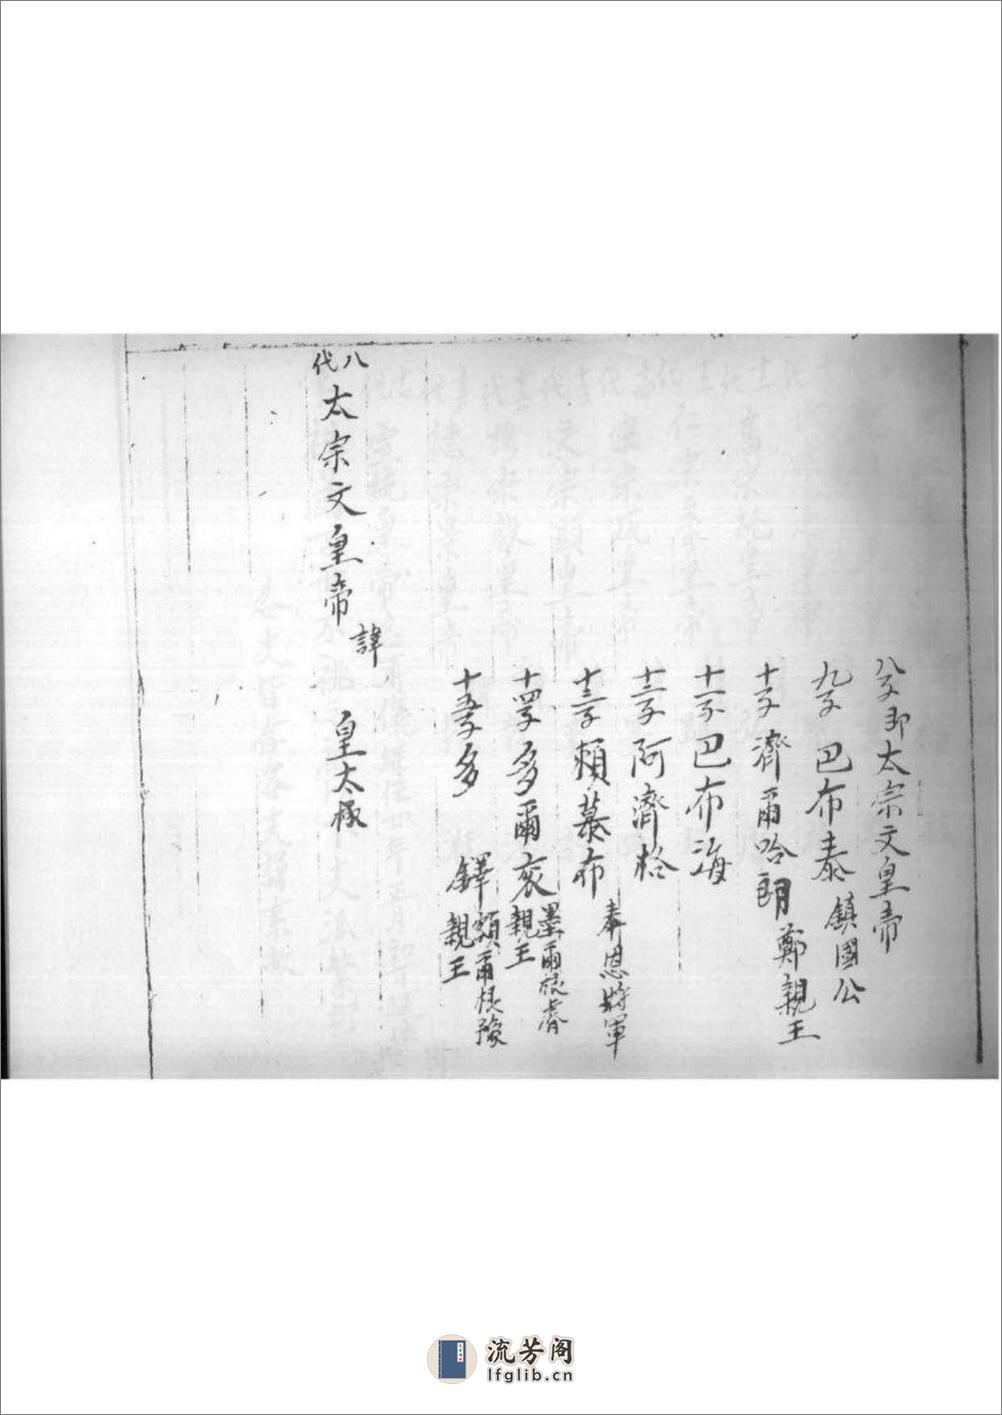 八子即太宗文皇帝
九子巴布泰 鎮國公
十子濟爾哈朗 鄭親王
十一子巴布海
十二子阿濟格
十三子賴慕布 奉恩將軍
十四子多爾袞 墨爾根睿親王
十五子多鐸 額爾根豫親王
八代 太宗文皇帝 諱 皇太極
流芳阁
lfglib.cn